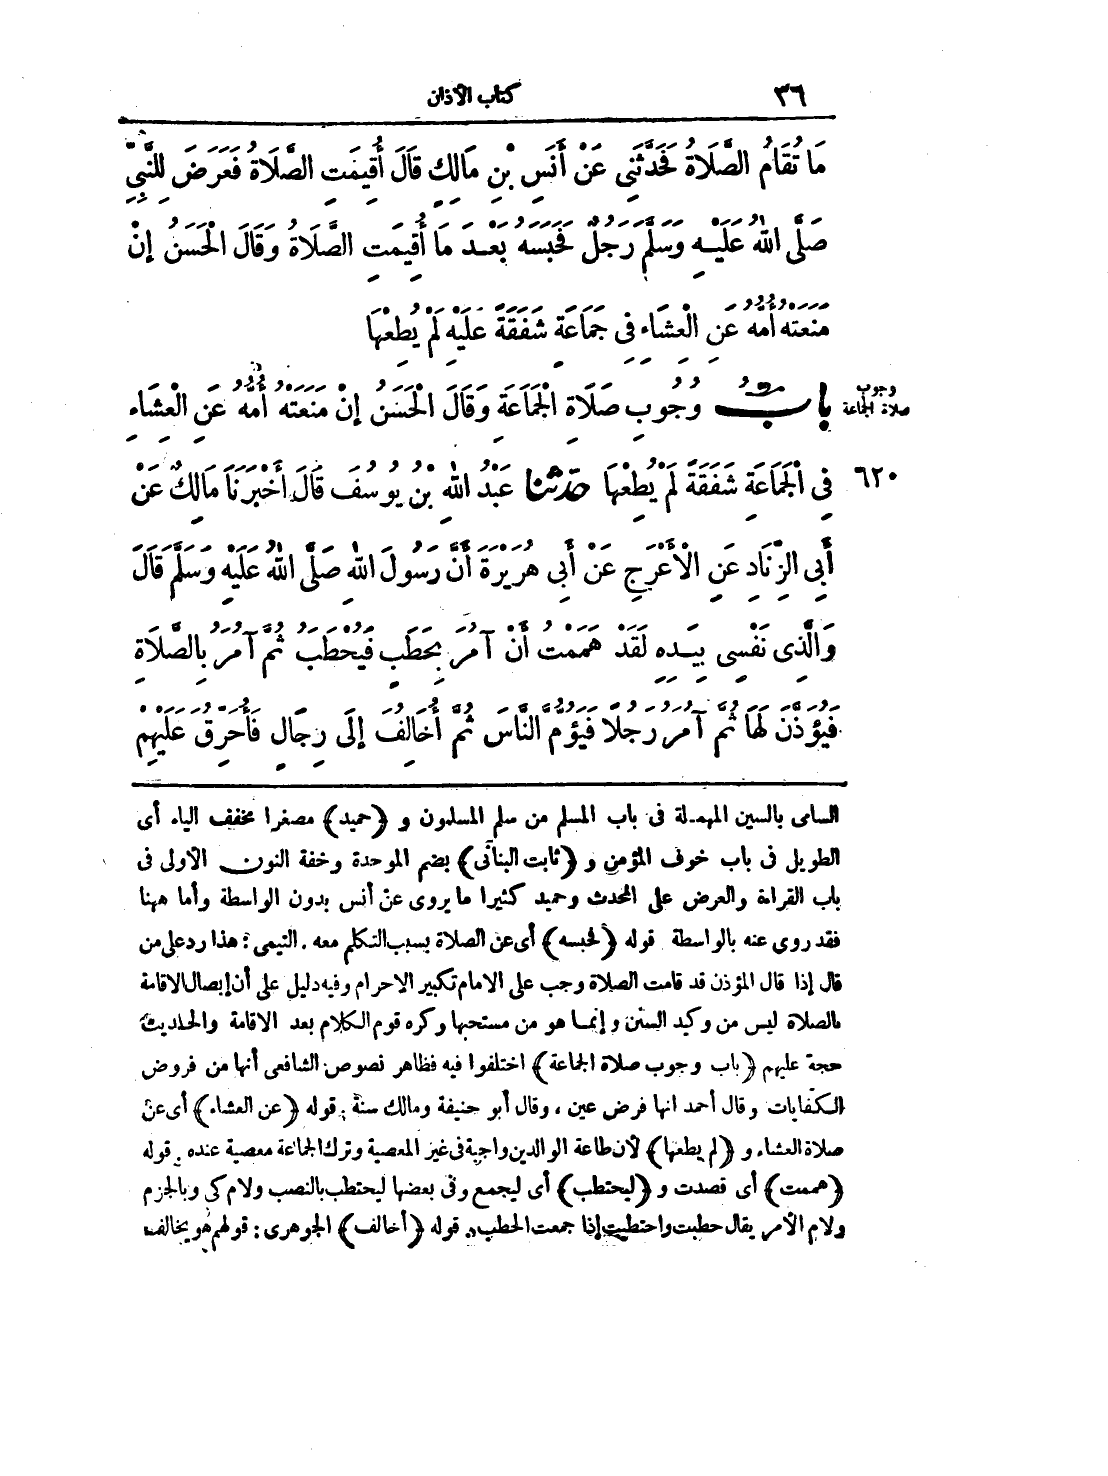 ٣٦ كتاب الأذان
مَا تُقَامُ الصَّلَاةُ فَحَدَّثَنِي عَنْ أَنَسِ بْنِ مَالِكٍ قَالَ أُقِيمَتِ الصَّلَاةُ فَعَرَضَ لِلنَّبِيِّ
صَلَّى اللهُ عَلَيْهِ وَسَلَّمَ رَجُلٌ فَحَبَسَهُ بَعْدَ مَا أُقِيمَتِ الصَّلَاةُ وَقَالَ الْحَسَنُ إِنْ
مَنَعَتْهُ أُمُّهُ عَنِ الْعِشَاءِ فِي جَمَاعَةٍ شَفَقَةً عَلَيْهِ لَمْ يُطِعْهَا
وجوب
صلاة الجماعة
بَابُ وُجُوبِ صَلَاةِ الْجَمَاعَةِ وَقَالَ الْحَسَنُ إِنْ مَنَعَتْهُ أُمُّهُ عَنِ الْعِشَاءِ
٦٢٠ فِي الْجَمَاعَةِ شَفَقَةً لَمْ يُطِعْهَا حَدَّثَنَا عَبْدُ اللهِ بْنُ يُوسُفَ قَالَ أَخْبَرَنَا مَالِكٌ عَنْ
أَبِي الزِّنَادِ عَنِ الْأَعْرَجِ عَنْ أَبِي هُرَيْرَةَ أَنَّ رَسُولَ اللهِ صَلَّى اللهُ عَلَيْهِ وَسَلَّمَ قَالَ
وَالَّذِي نَفْسِي بِيَدِهِ لَقَدْ هَمَمْتُ أَنْ آمُرَ بِحَطَبٍ فَيُحْطَبُ ثُمَّ آمُرَ بِالصَّلَاةِ
فَيُؤَذَّنَ لَهَا ثُمَّ آمُرَ رَجُلًا فَيَؤُمَّ النَّاسَ ثُمَّ أُخَالِفَ إِلَى رِجَالٍ فَأُحَرِّقَ عَلَيْهِمْ
السامى بالسين المهملة فى باب المسلم من سلم المسلمون و ﴿حميد﴾ مصغرا مخفف الياء أى
الطويل فى باب خوف المؤمن و ﴿ثابت البنانى﴾ بضم الموحدة وخفة النون الأولى فى
باب القراءة والعرض على المحدث وحميد كثيرا ما يروى عن أنس بدون الواسطة وأما ههنا
فقد روى عنه بالواسطة قوله ﴿لحبسه﴾ أى عن الصلاة بسبب التكلم معه. التيمى: هذا رد على من
قال إذا قال المؤذن قد قامت الصلاة وجب على الامام تكبير الاحرام وفيه دليل على أن إيصال الاقامة
بالصلاة ليس من وكيد السنن وإنما هو من مستحبها وكره قوم الكلام بعد الاقامة والحديث
حجة عليهم ﴿باب وجوب صلاة الجماعة﴾ اختلفوا فيه فظاهر نصوص الشافعى أنها من فروض
الكفايات وقال أحمد انها فرض عين، وقال أبو حنيفة ومالك سنة. قوله ﴿عن العشاء﴾ أى عن
صلاة العشاء و ﴿لم يطعها﴾ لأن طاعة الوالدين واجبة فى غير المعصية وترك الجماعة معصية عنده. قوله
﴿هممت﴾ أى قصدت و ﴿ليحتطب﴾ أى ليجمع وفى بعضها ليحتطب بالنصب ولام كى وبالجزم
ولام الأمر يقال حطبت واحتطبت إذا جمعت الحطب. قوله ﴿أخالف﴾ الجوهرى: قولهم هو يخالف